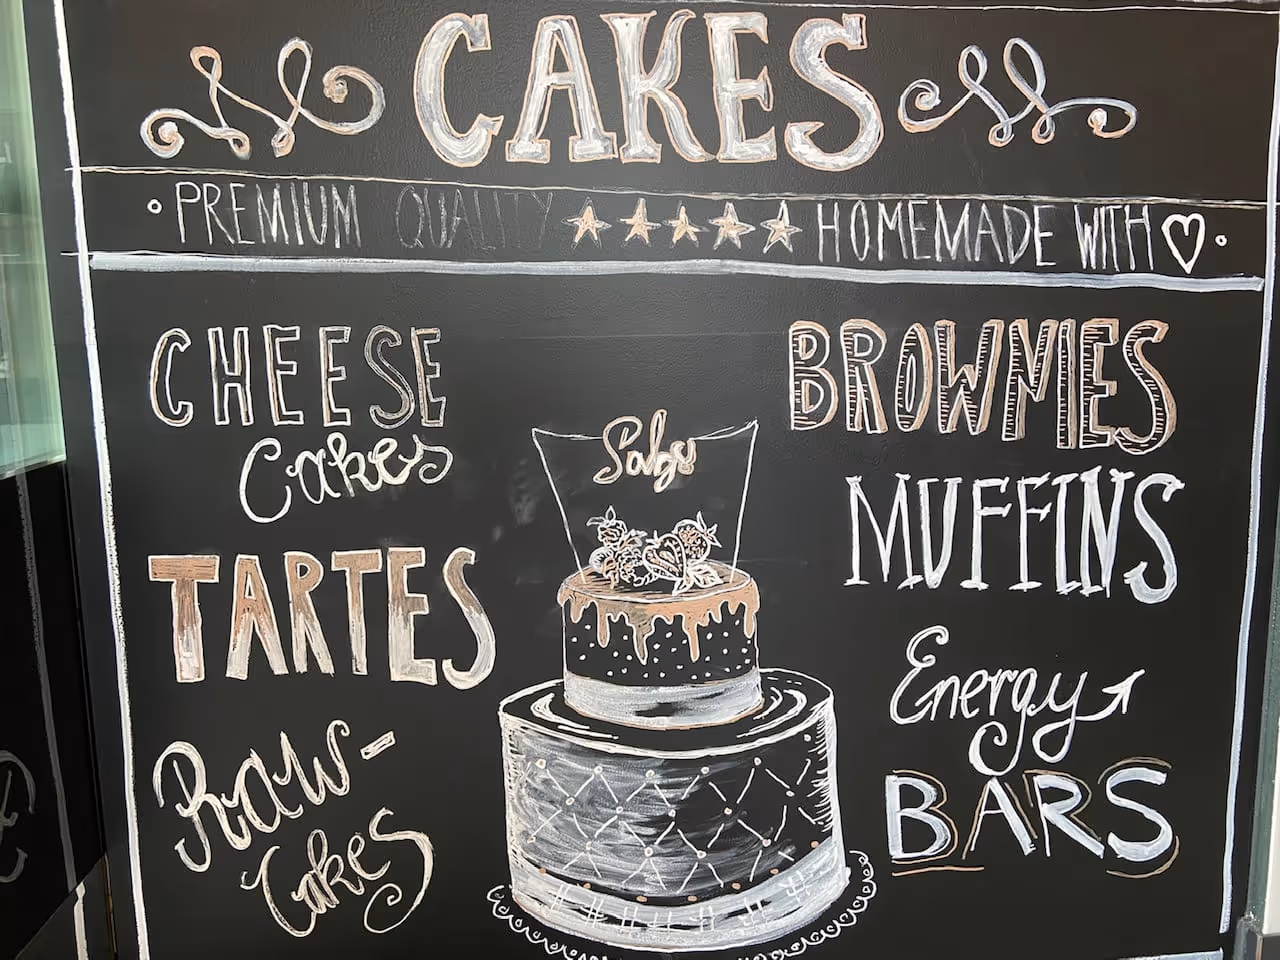 CAKES
PREMIUM QUALITY ★★★★★ HOMEMADE WITH ♡
CHEESE
Cakes
TARTES
RAW-
Cakes
BROWNIES
MUFFINS
Energy
BARS